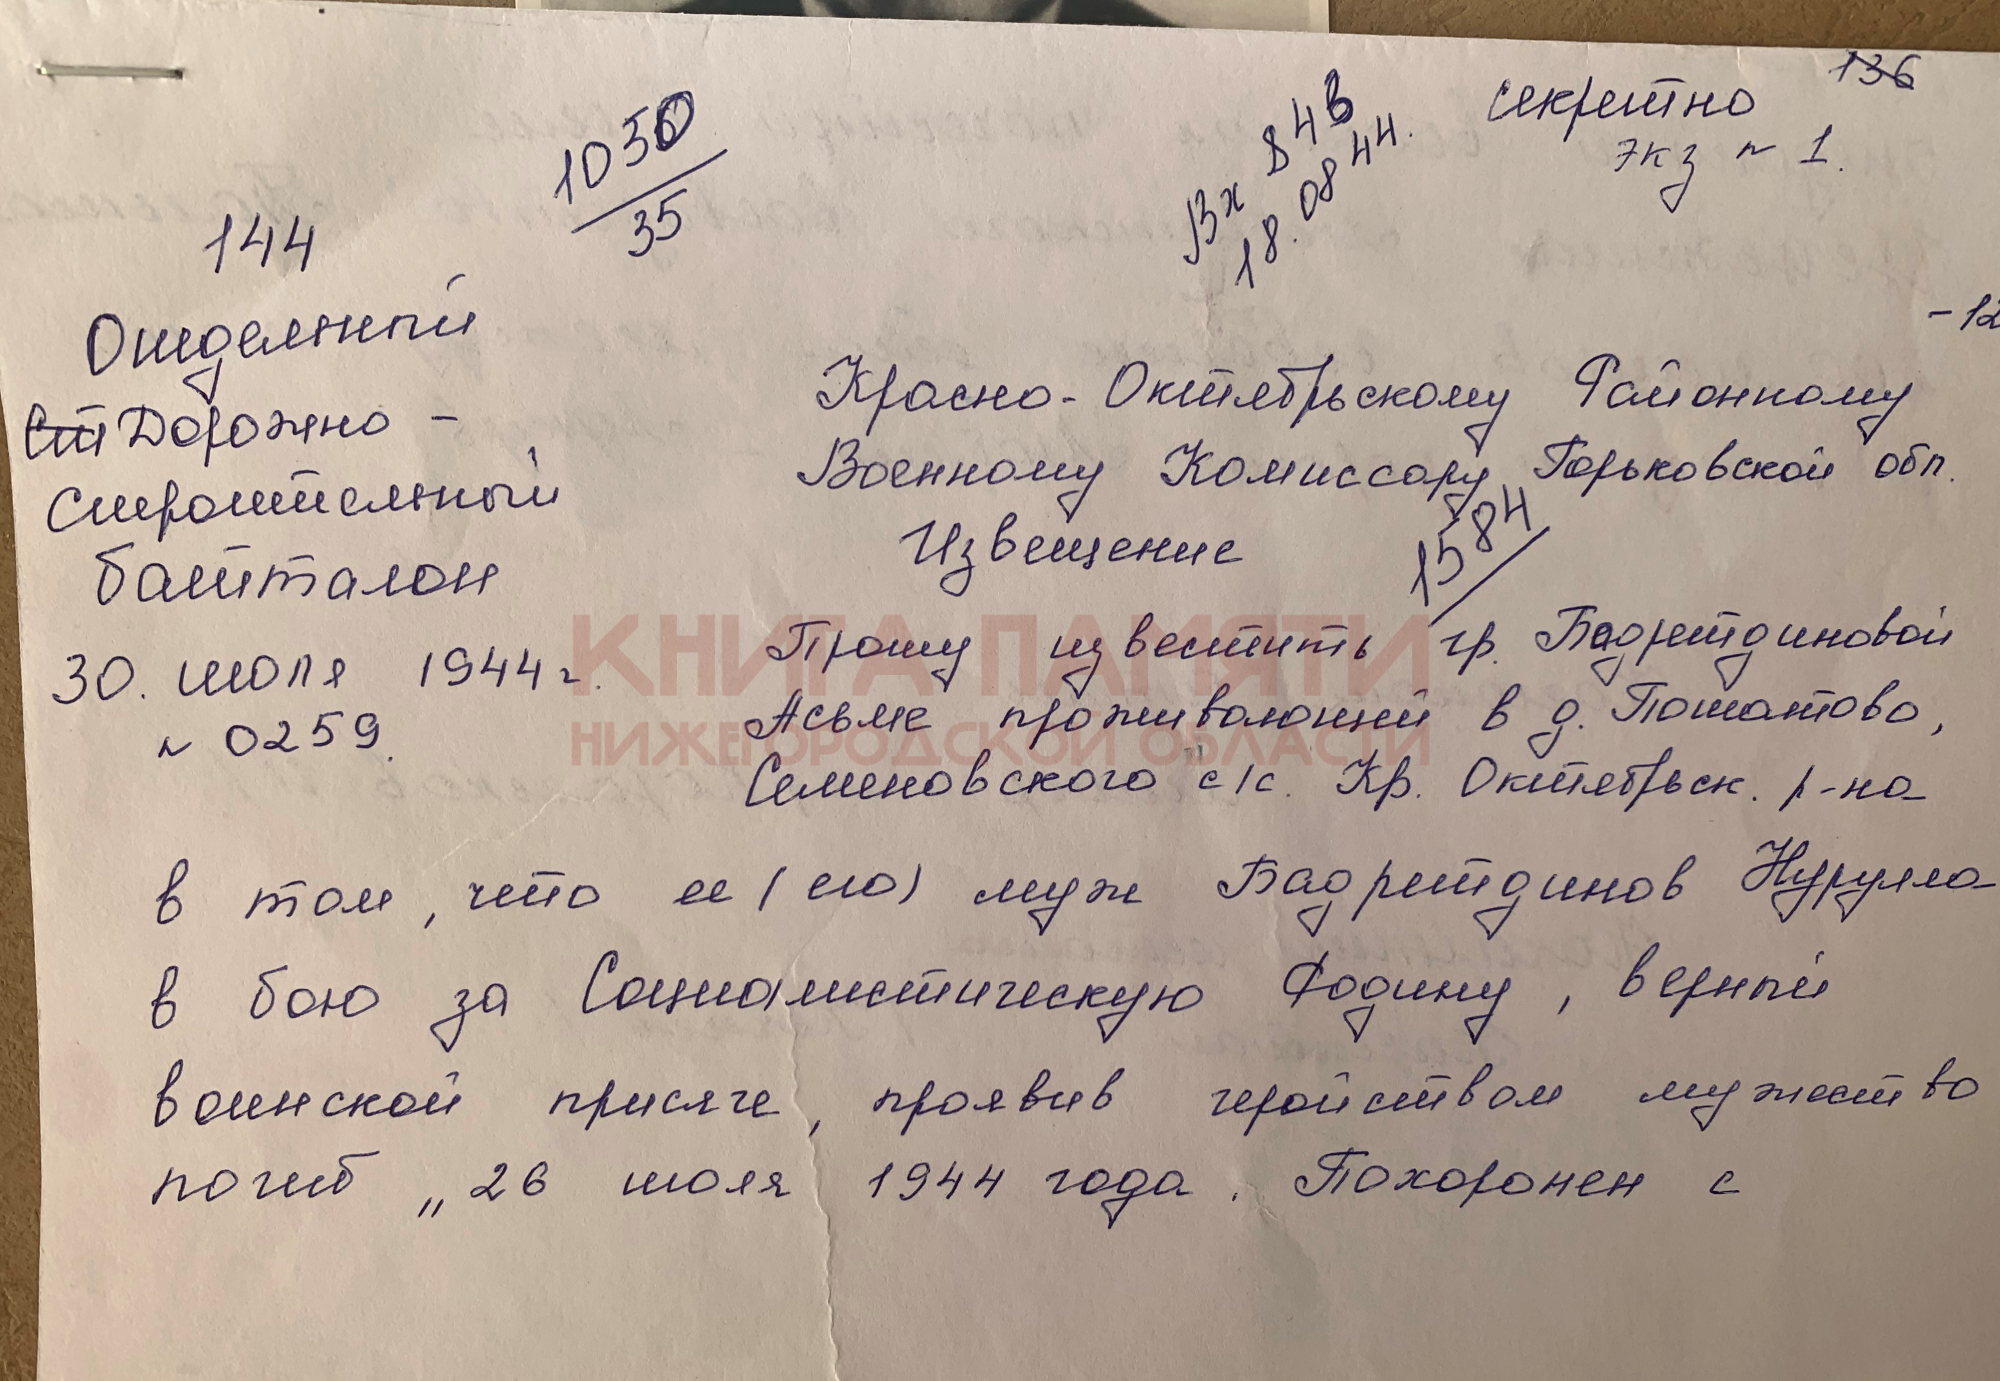 136
секретно
экз № 1.
Вх 84в
18.08 44.
1050
35
144
Отдельный
Ст Дорожно-
строительный
батталон
30. июля 1944 г.
№ 0259.
-12
Красно-Октябрьскому Районному
Военному Комиссару Горьковской обл.
Извещение
1584
Прошу известить гр. Бадретдиновой
Асьме проживающей в д. Пошатово,
Семеновского с/с. Кр. Октябрьск. р-на
в том, что ее (его) муж Бадретдинов Нурулла
в бою за Социалистическую Родину, верный
воинской присяге, проявив геройством мужество
погиб „26 июля 1944 года. Похоронен с
КНИГА ПАМЯТИ
НИЖЕГОРОДСКОЙ ОБЛАСТИ